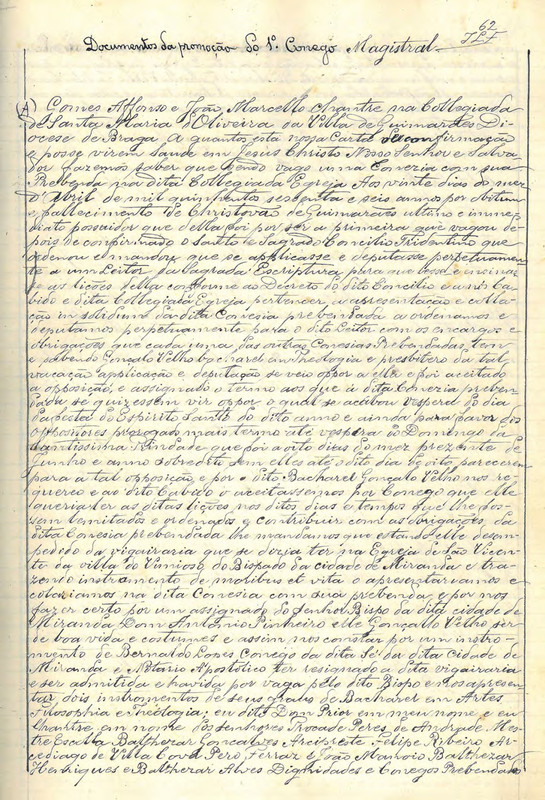 62
Documentos da promoção do 1º. Conego Magistral
A) Gomes Affonso e João Marcello Chantre na Collegiada
de Santa Maria d'Oliveira da Villa de Guimarães Di-
ocese de Braga a quantos esta nossa Carta de confirmação
e posse virem Saude em Jesus Christo Nosso Senhor e Salva-
dor fazemos saber que sendo vago uma Conezia com sua
Prebenda na dita Collegiada Egreja Aos vinte dias do mez
d'Abril de mil quinhentos sessenta e seis annos por obitum
e fallecimento de Christovão de Guimarães ultimo e imme-
diato possuidor que della foi por ser a primeira que vagou de-
pois de confirmado o Santo e Sagrado Concilio Tridentino que
ordenou e mandou que se applicasse e deputasse perpetuamen-
te a um Leitor da Sagrada Escriptura para que lesse e ensinas-
se as lições della conforme ao Decreto do dito Concilio e a nós Ca-
bido e dita Collegiada Egreja pertencer a apresentação e colla-
ção in solidum da dita Conesia prebendada a ordenamos e
deputamos perpetuamente para o dito Leitor com os encargos e
obrigações que cada uma das outras Conesias Prebendadas tem
e sabendo Gonçalo Velho bacharel em Theologia e presbitero da tal
vacação applicação e deputação se veio oppor a ella e foi aceitado
a opposição, e assignado o termo aos que á dita Conezia preben-
dada se quizessem vir oppor o qual se acabou vespera do dia
da festa do Espirito Santo do dito anno e ainda para favor dos
Oppositores prorogado mais termo até vespera do Domingo da
Santissima Trindade que foi a oito dias do mez prezente de
Junho e anno sobredito sem elles até o dito dia de oito parecerem
para a tal opposição e por o dito Bacharel Gonçalo Velho nos re-
quereo e ao dito Cabido o aceitassemos por Conego que elle
queria ler as ditas lições nos ditos dias e tempos que lhe fos-
sem limitados e ordenados e contribuir com as obrigações da
dita Conesia prebendada lhe mandamos que estando elle desem-
pedido da vigairaria que se dizia ter na Egreja de São Vicente
da villa do Vimioso do Bispado da cidade de Miranda e tra-
zendo instrumento de moribus et vita o apresentariamos e
collariamos na dita Conesia com sua prebenda, e por nos
fazer certo por um assignado do Senhor Bispo da dita cidade de
Miranda Dom Antonio Pinheiro elle Gonçalo Velho ser
de boa vida e costumes e assim nos constar por um instro-
mento de Bernaldo Lopes Conego da dita Sé da dita Cidade de
Miranda e Notario Apostolico ter resignado a dita vigairaria
e ser admitida e havida por vaga pelo dito Bispo e nos apresen-
tar dois instrumentos de seus graus de Bacharel em Artes
Filosophia e Theologia; eu dito Dom Prior em meu nome e eu
Chantre em nome dos Senhores Peres de Andrade Mes-
tre Escolla Balthezar Gonçalves Arcipreste Felipe Ribeiro Ar-
cediago de Villa Cova Pero Ferraz e João Balthezar
Henriques e Balthezar Alves Dignidades e Conegos Prebendados